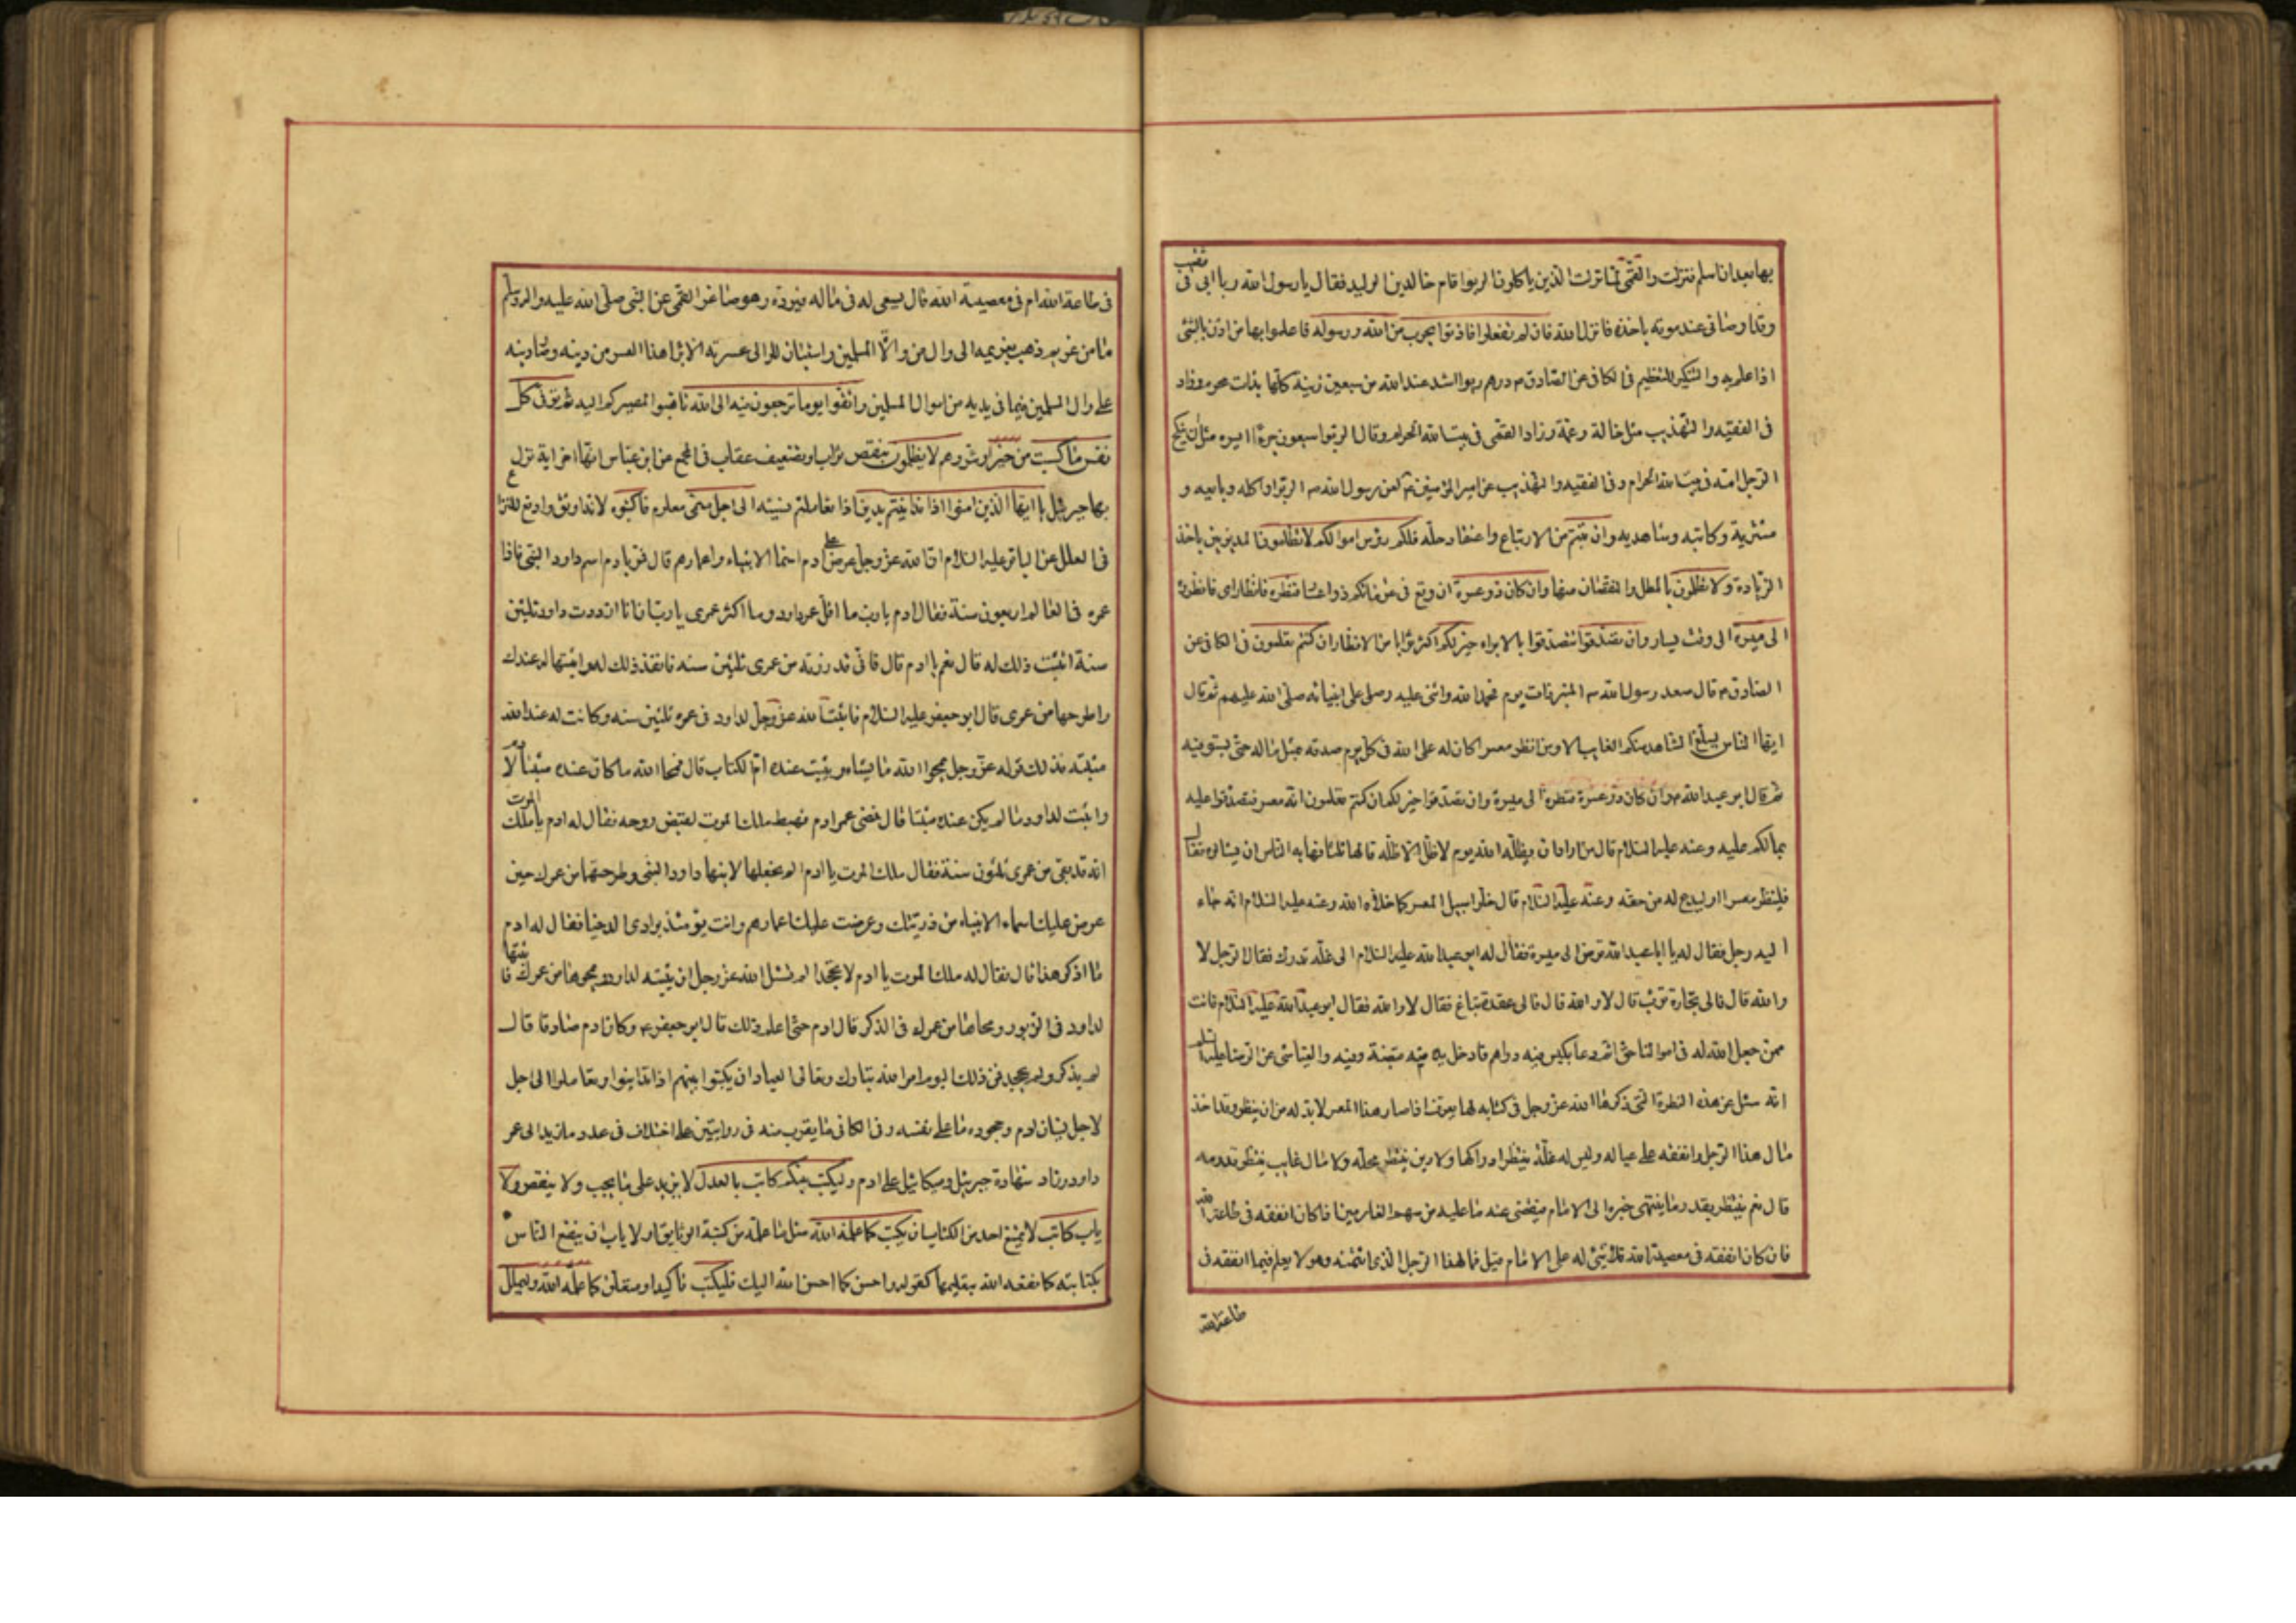 بها بعد ان اسلم فنزلت والقمى لما نزلت الذين ياكلون الربوا قام خالد بن الوليد فقال يا رسول الله ربا ابى فى ثقيف
وقد اوصانى عند موته باخذه فانزل الله فان لم تفعلوا فاذنوا بحرب من الله ورسوله فاعلموا بها من اذن بالشئ
اذا علم به والتنكير للتعظيم فى الكافى عن الصادق م درهم ربوا اشد عند الله من سبعين زنية كلها بذات محرم وزاد
فى الفقيه والتهذيب مثل خالة وعمة وزاد القمى فى بيت الله الحرام وقال الربوا سبعون جزءا ايسره مثل ان ينكح
الرجل امه فى بيت الله الحرام وفى الفقيه والتهذيب عن امير المؤمنين م لعن رسول الله ص الربوا واكله وبايعه و
مشتريه وكاتبه وشاهديه وان تبتم من الارتباء واعتقاد حله فلكم رؤس اموالكم لا تظلمون المديونين باخذ
الزيادة ولا تظلمون بالمطل والنقصان منها وان كان ذو عسرة ان وقع فى غرمائكم ذو اعسار فنظرة فانظار اى فانظروه
الى ميسرة الى وقت يسار وان تصدقوا تتصدقوا بالابراء خير لكم اكثر ثوابا من الانظار ان كنتم تعلمون فى الكافى عن
الصادق م قال صعد رسول الله ص المنبر ذات يوم فحمد الله واثنى عليه وصلى على انبيائه صلى الله عليهم ثم قال
ايها الناس ليبلغ الشاهد منكم الغايب الا ومن انظر معسرا كان له على الله فى كل يوم صدقة مثل ماله حتى يستوفيه
ثم قال ابو عبد الله م وان كان ذو عسرة فنظرة الى ميسرة وان تصدقوا خير لكم ان كنتم تعلمون انه معسر فتصدقوا عليه
بمالكم عليه وعنه عليه السلام قال من اراد ان يظله الله يوم لا ظل الا ظله قالها ثلثا فهابه الناس ان يسالوه فقال
فلينظر معسرا او ليدع له من حقه وعنه عليه السلام قال خلوا سبيل المعسر كما خلاه الله وعنه عليه السلام انه جاء
اليه رجل فقال له يا ابا عبد الله قرض الى ميسرة فقال له ابو عبد الله عليه السلام الى غلة تدرك فقال الرجل لا
والله قال فالى تجارة تؤب قال لا والله قال فالى عقدة تباع فقال لا والله فقال ابو عبد الله عليه السلام فانت
ممن جعل الله له فى اموالنا حقا ثم دعا بكيس فيه دراهم فادخل يده فيه فقبض قبضة وفيه والعياشى عن الرضا عليه السلم
انه سئل عن هذه النظرة التى ذكرها الله عز وجل فى كتابه لها حد يعرف اذا صار هذا المعسر لا بد له من ان ينظر وقد اخذ
مال هذا الرجل وانفقه على عياله وليس له غلة ينتظر ادراكها ولا دين ينتظر محله ولا مال غايب ينتظر قدومه
قال نعم ينتظر بقدر ما ينتهى خبره الى الامام فيقضى عنه ما عليه من سهم الغارمين اذا كان انفقه فى طاعة الله
فان كان انفقه فى معصية الله فلا شئ له على الامام قيل فما لهذا الرجل الذى ائتمنه وهو لا يعلم فيما انفقه فى
طاعة الله
فى طاعة الله ام فى معصية الله قال يسعى له فى ماله فيرده وهو صاغر القمى عن النبى صلى الله عليه واله وسلم
ما من غريم ذهب بغريمه الى وال من ولاة المسلمين واستبان للوالى عسرته الا برا هذا المعسر من دينه وصار دينه
على وال المسلمين فيما فى يديه من اموال المسلمين واتقوا يوما ترجعون فيه الى الله تاهبوا لمصيركم اليه ثم توفى كل
نفس ما كسبت من خير او شر وهم لا يظلمون بنقص ثواب او تضعيف عقاب فى المجمع عن ابن عباس انها اخر اية نزل
بها جبرئيل ع يا ايها الذين امنوا اذا تداينتم بدين اذا تعاملتم نسيئة الى اجل مسمى معلوم فاكتبوه لانه اوثق وادفع للنزاع
فى العلل عن الباقر عليه السلام ان الله عز وجل عرض على ادم اسماء الانبياء واعمارهم قال فمر بادم اسم داود النبى فاذا
عمره فى العالم اربعون سنة فقال ادم يا رب ما اقل عمر داود وما اكثر عمرى يا رب ان انا ازددت داود ثلثين
سنة اتثبت ذلك له قال نعم يا ادم قال فانى قد زدته من عمرى ثلثين سنه فانفذ ذلك له واثبتها له عندك
واطرحها من عمرى قال ابو جعفر عليه السلام فاثبت الله عز وجل لداود فى عمره ثلثين سنه وكانت له عند الله
مثبتة فذلك قوله عز وجل يمحوا الله ما يشاء ويثبت عنده ام الكتاب قال فمحا الله ما كان عنده مثبتا لادم
واثبت لداود ما لم يكن عنده مثبتا قال فمضى عمر ادم فهبط ملك الموت لقبض روحه فقال له ادم يا ملك الموت
انه قد بقى من عمرى ثلثون سنة فقال ملك الموت يا ادم الم تجعلها لابنك داود النبى وطرحتها من عمرك حين
عرض عليك اسماء الانبياء من ذريتك وعرضت عليك اعمارهم وانت يومئذ بوادى الدخيا فقال له ادم
ما اذكر هذا قال فقال له ملك الموت يا ادم لا تجحد الم تسئل الله عز وجل ان يثبته لداود ويمحوها من عمرك فاثبتها
لداود فى الزبور ومحاها من عمرك فى الذكر قال ادم حتى اعلم ذلك قال ابو جعفر م وكان ادم صادقا قال
لم يذكر ولم يجحد فمن ذلك اليوم امر الله تبارك وتعالى العباد ان يكتبوا بينهم اذا تداينوا وتعاملوا الى اجل
لاجل نسيان ادم وجحوده ما على نفسه وفى الكافى ما يقرب منه فى روايتين على اختلاف فى عدد ما زيد الى عمر
داود وزاد شهادة جبرئيل وميكائيل على ادم وليكتب بينكم كاتب بالعدل لا يزيد على ما يجب ولا ينقص ولا
ياب كاتب لا يمتنع احد من الكتاب ان يكتب كما علمه الله مثل ما علمه من كتبة الوثايق او لا ياب ان ينفع الناس
بكتابته كما نفعه الله بتعليمها كقوله واحسن كما احسن الله اليك فليكتب تاكيد او متعلق كما علمه الله وليملل